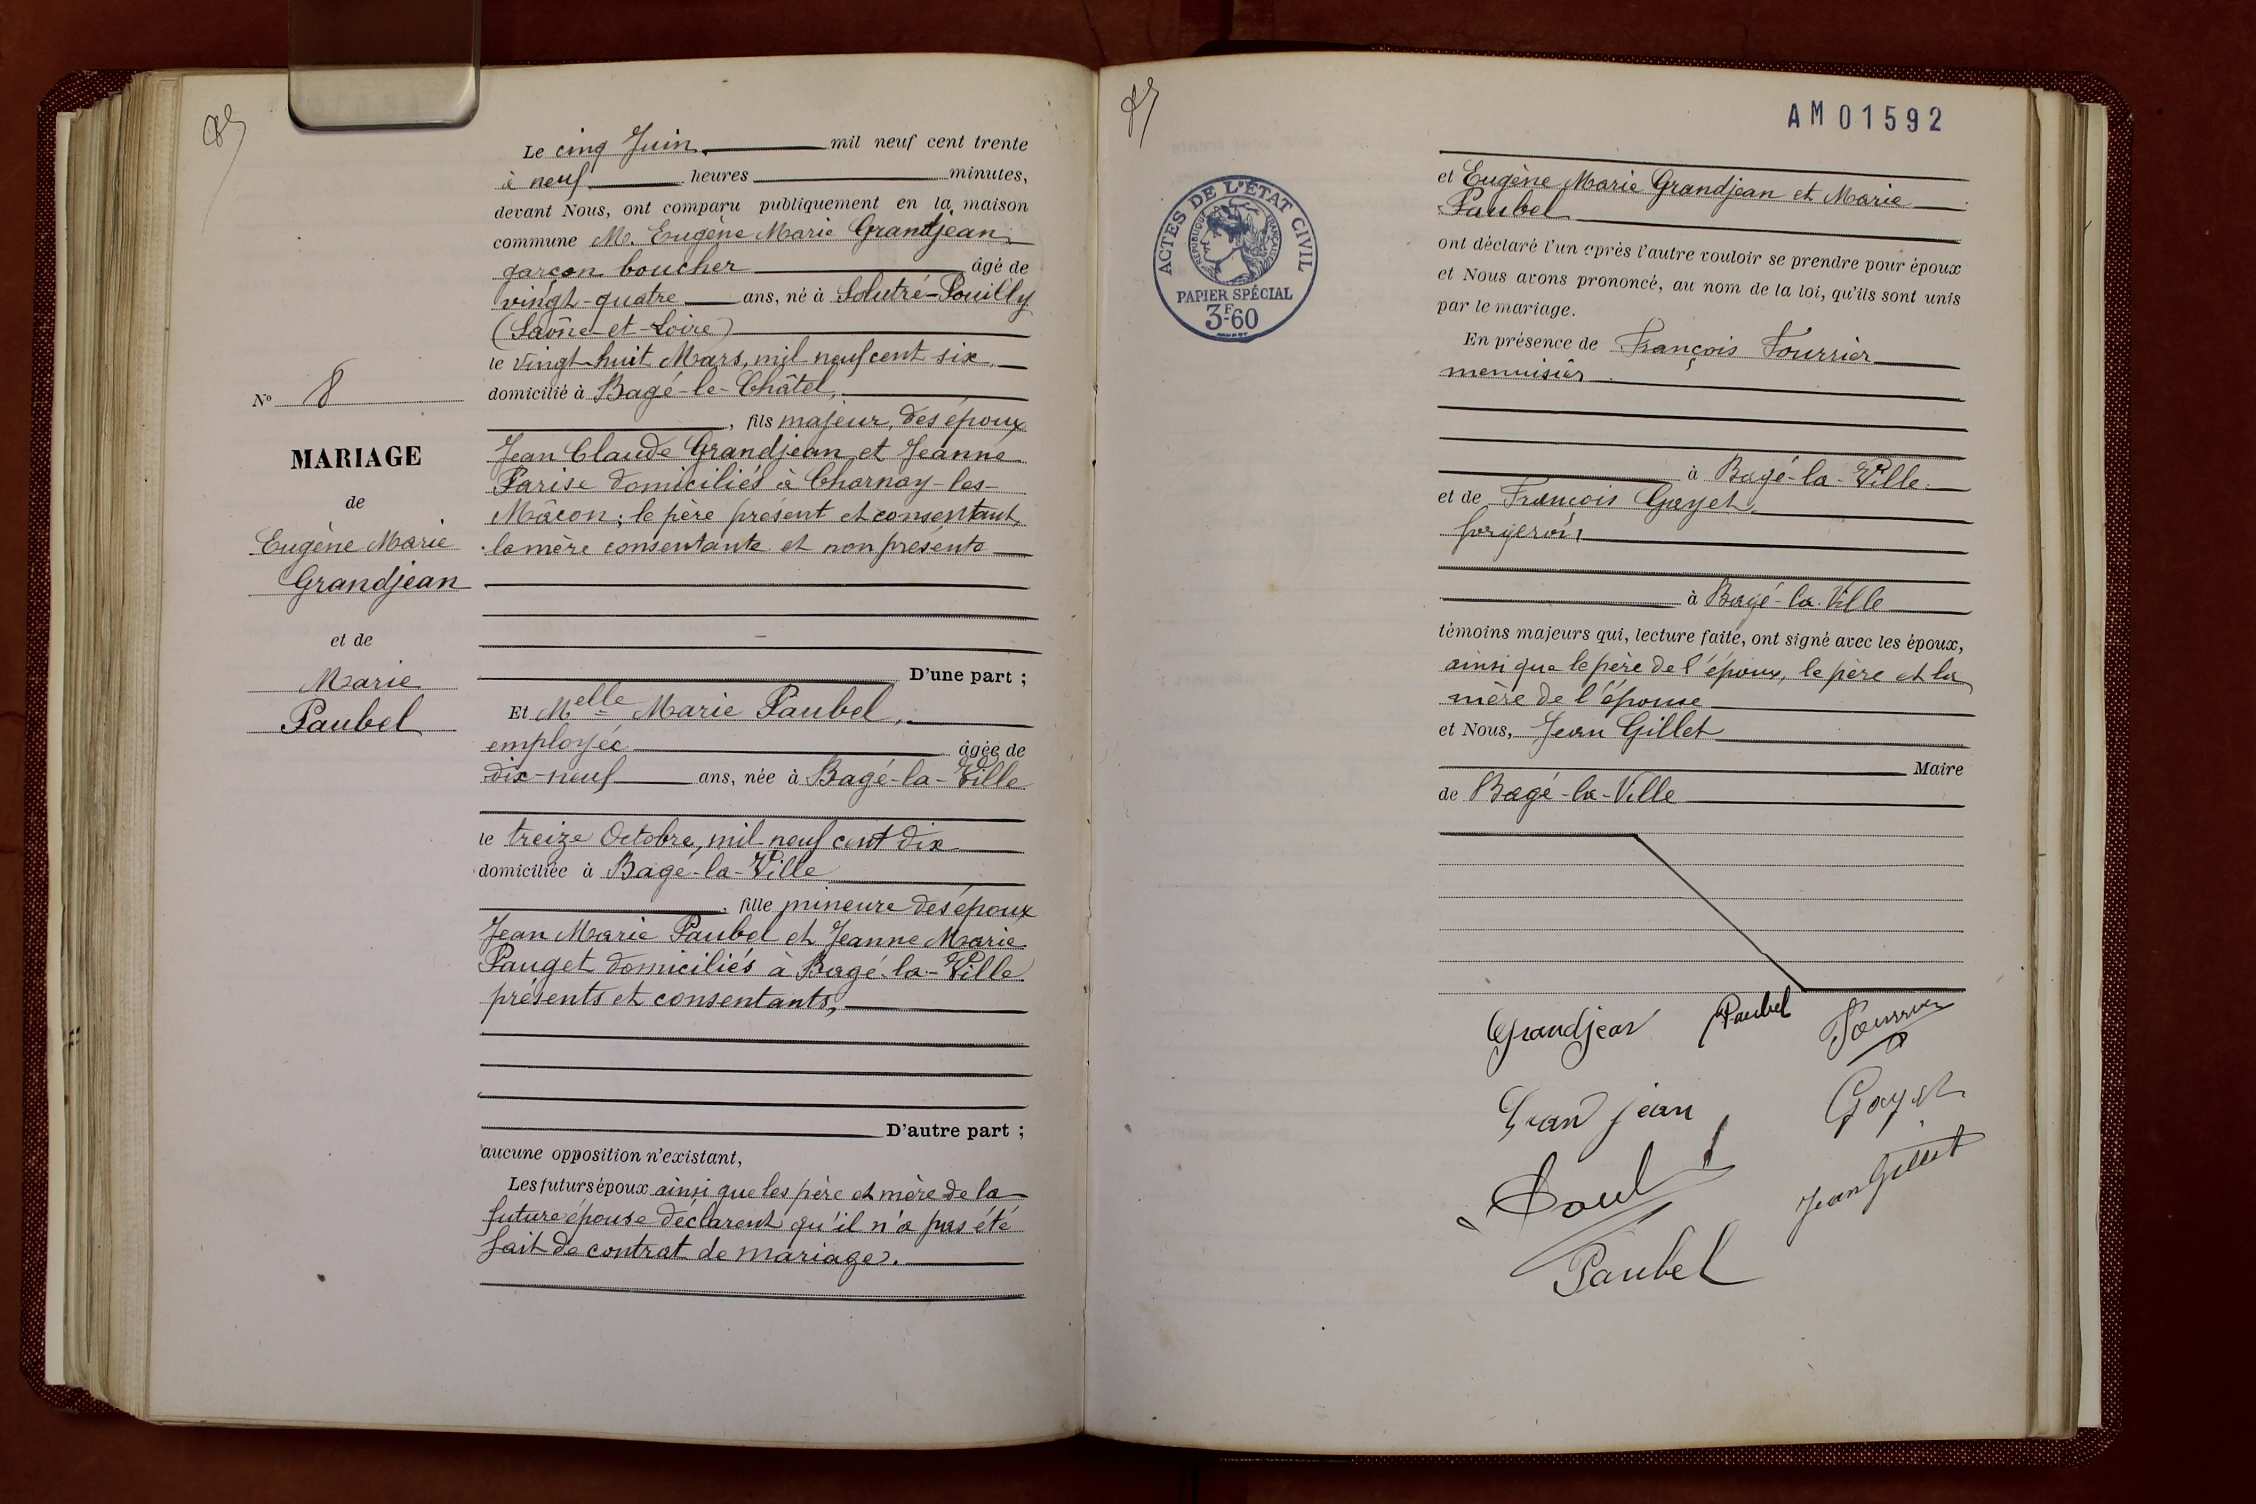 Le cinq Juin mil neuf cent trente
à neuf heures minutes,
devant Nous, ont comparu publiquement en la maison
commune M. Eugène Marie Grandjean
garçon boucher âgé de
vingt-quatre ans, né à Solutré-Pouilly
(Saône-et-Loire)
le vingt-huit Mars, mil neuf cent six
domicilié à Bagé-le-Châtel,
, fils majeur, des époux
Jean Claude Grandjean et Jeanne
Parise domiciliés à Charnay-les-
Mâcon; le père présent et consentant
la mère consentante et non présente
D'une part ;
Et Melle Marie Paubel,
employée âgée de
dix-neuf ans, née à Bagé-la-Ville
le treize Octobre, mil neuf cent dix
domiciliée à Bagé-la-Ville
, fille mineure des époux
Jean Marie Paubel et Jeanne Marie
Pauget domiciliés à Bagé-la-Ville
présents et consentants,
D'autre part ;
aucune opposition n'existant,
Les futurs époux ainsi que les père et mère de la
future épouse déclarent qu'il n'a pas été
fait de contrat de mariage.
N° 8
MARIAGE
de
Eugène Marie
Grandjean
et de
Marie
Paubel
AM01592
ACTES DE L'ÉTAT CIVIL
RÉPUBLIQUE FRANÇAISE
PAPIER SPÉCIAL
3F-60
et Eugène Marie Grandjean et Marie
Paubel
ont déclaré l'un après l'autre vouloir se prendre pour époux
et Nous avons prononcé, au nom de la loi, qu'ils sont unis
par le mariage.
En présence de François Fourrier
menuisier
à Bagé-la-Ville
et de François Gayet
forgeron,
à Bagé-la-Ville
témoins majeurs qui, lecture faite, ont signé avec les époux,
ainsi que le père de l'époux, le père et la
mère de l'épouse
et Nous, Jean Gillet
Maire
de Bagé-la-Ville
Grandjean Paubel Fourrier
Gran jean Gayet
Jean Gillet
Paubel